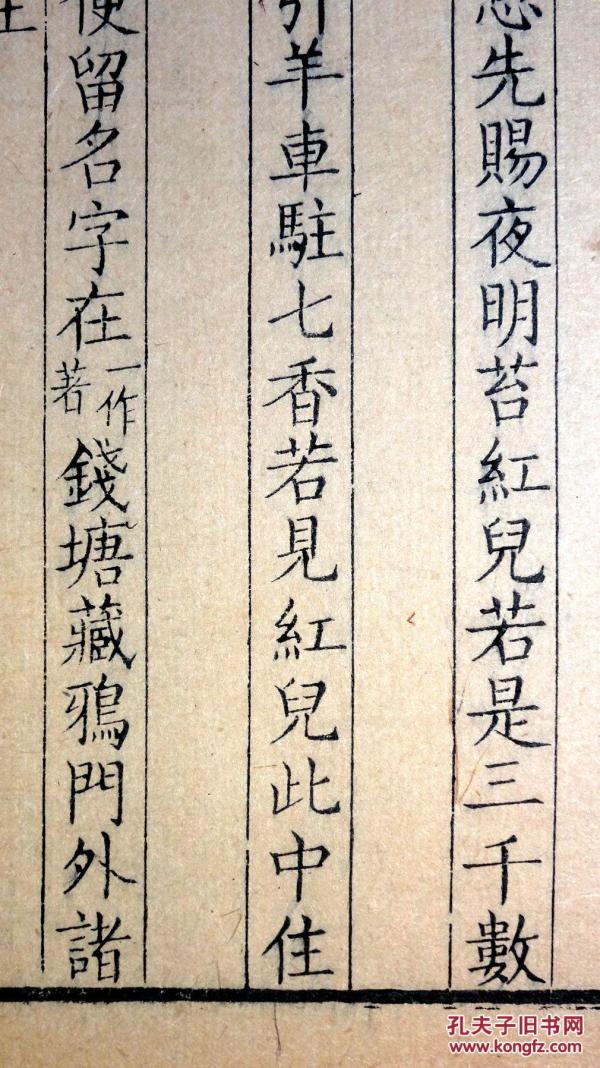 先賜夜明苔紅兒若是三千數
引羊車駐七香若見紅兒此中住
便留名字在一作著錢塘藏鴉門外諸
孔夫子旧书网
www.kongfz.com